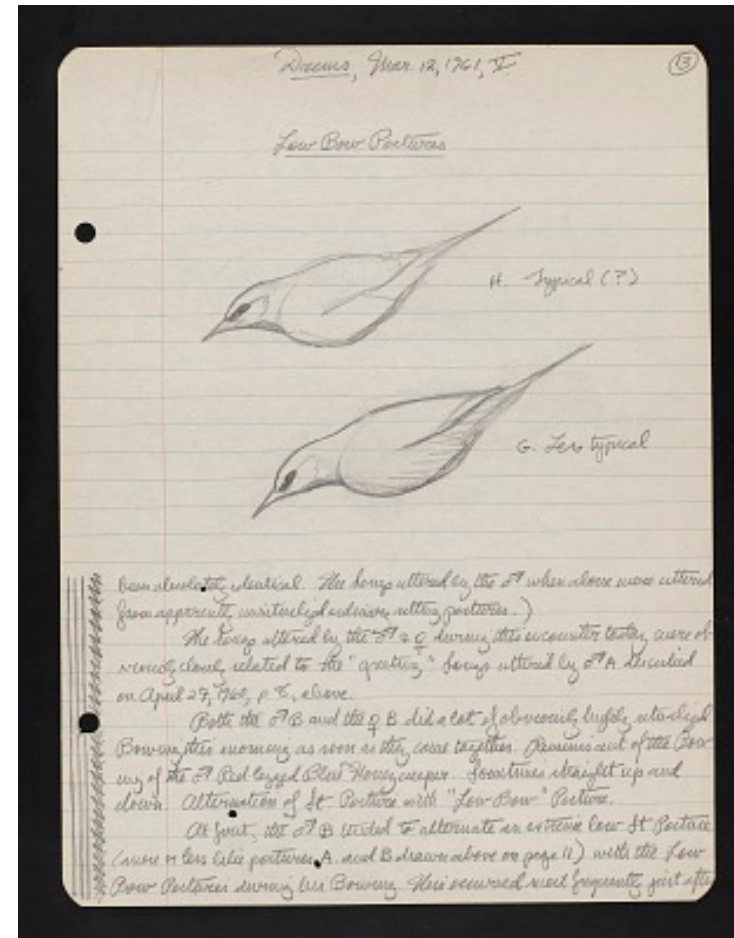 Dacnis, Mar. 12, 1961, V
13
Low Bow Postures
H. Typical (?)
G. Less typical
been absolutely identical. The songs uttered by the ♂ when alone were uttered
from apparently unritualized ordinary sitting postures.)
The songs uttered by the ♂ & ♀ during this encounter today were ob-
viously closely related to the "greeting" songs uttered by ♂ A described
on April 27, 1960, p. 8, above.
Both the ♂ B and the ♀ B did a lot of obviously highly ritualized
Bowing this morning as soon as they came together. Reminiscent of the Bow-
ing of the ♂ Red legged Blue Honeycreeper. Sometimes straight up and
down. Alternation of St. Posture with "Low Bow" Posture.
At first, the ♂ B tended to alternate an extreme low St Posture
(more or less like postures A and B drawn above on page 11) with the Low
Bow Postures during his Bowing. This occurred most frequently just after